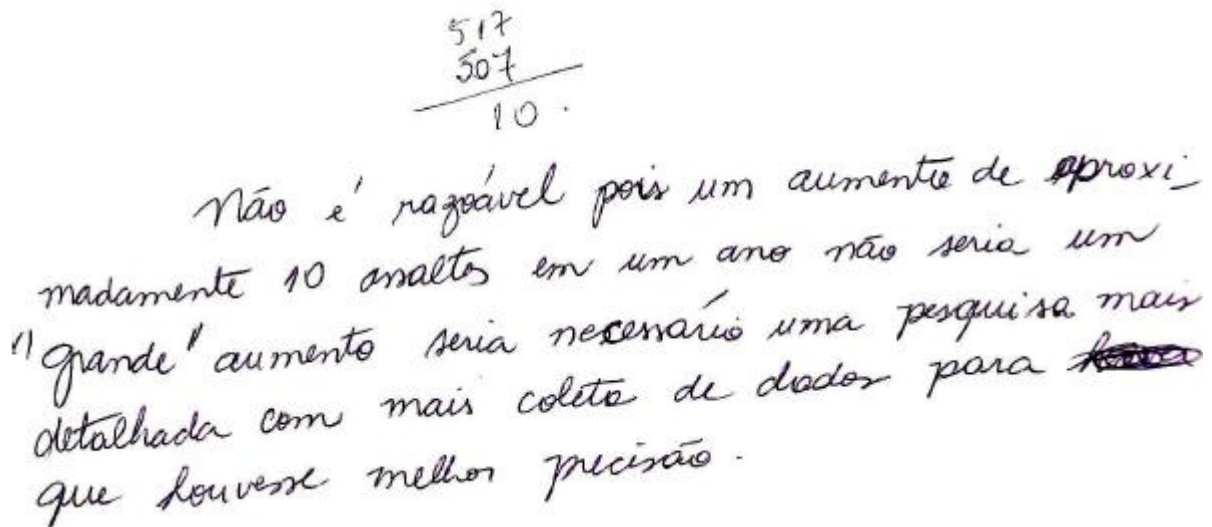 517
507
10.
Não é razoável pois um aumento de aproxi-
madamente 10 assaltos em um ano não seria um
"grande" aumento seria necessário uma pesquisa mais
detalhada com mais coleta de dados para
que houvesse melhor precisão.